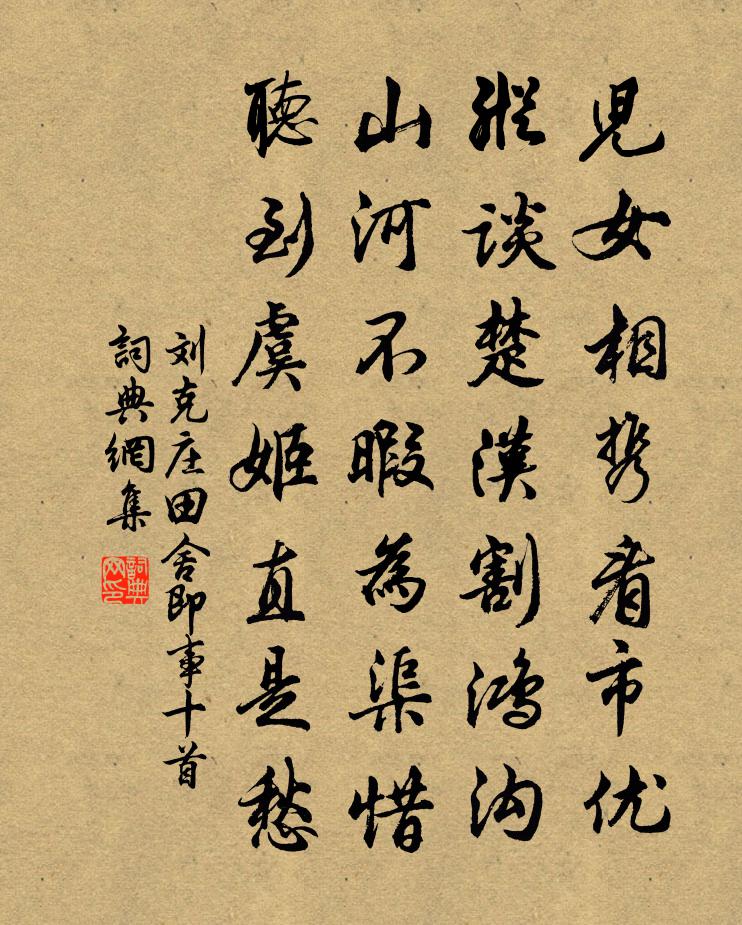 児女相携看市优
縱谈楚漢割鸿沟
山河不暇為渠惜
聴到虞姬直是愁
刘克庄田舍即事十首
詞典網集
詞典网印